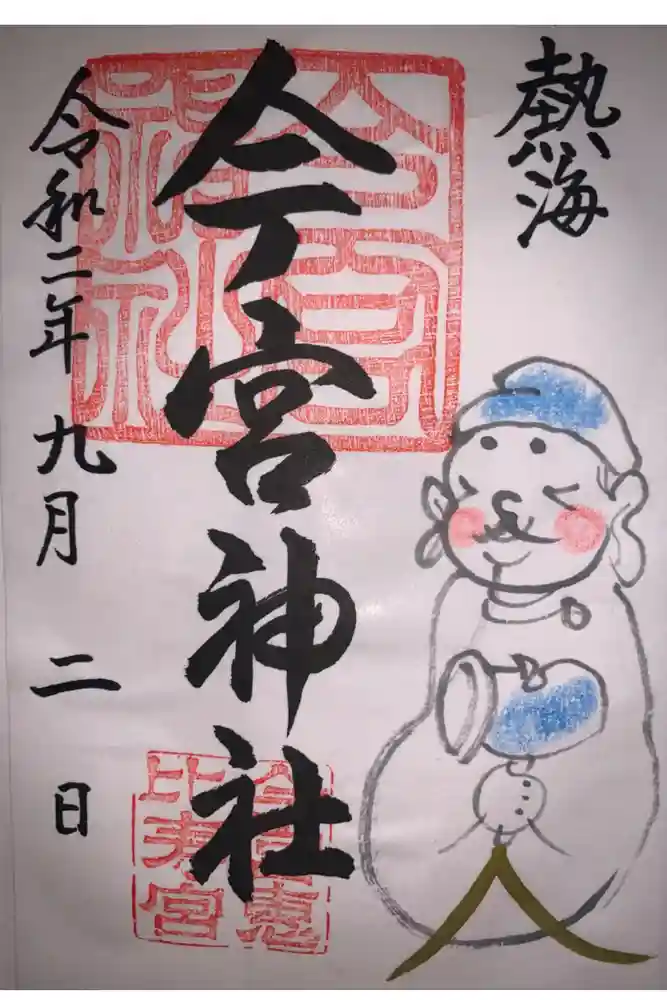 熱海
今宮神社
令和二年 九月 二日
今宮
神社
今宮恵
比寿宮